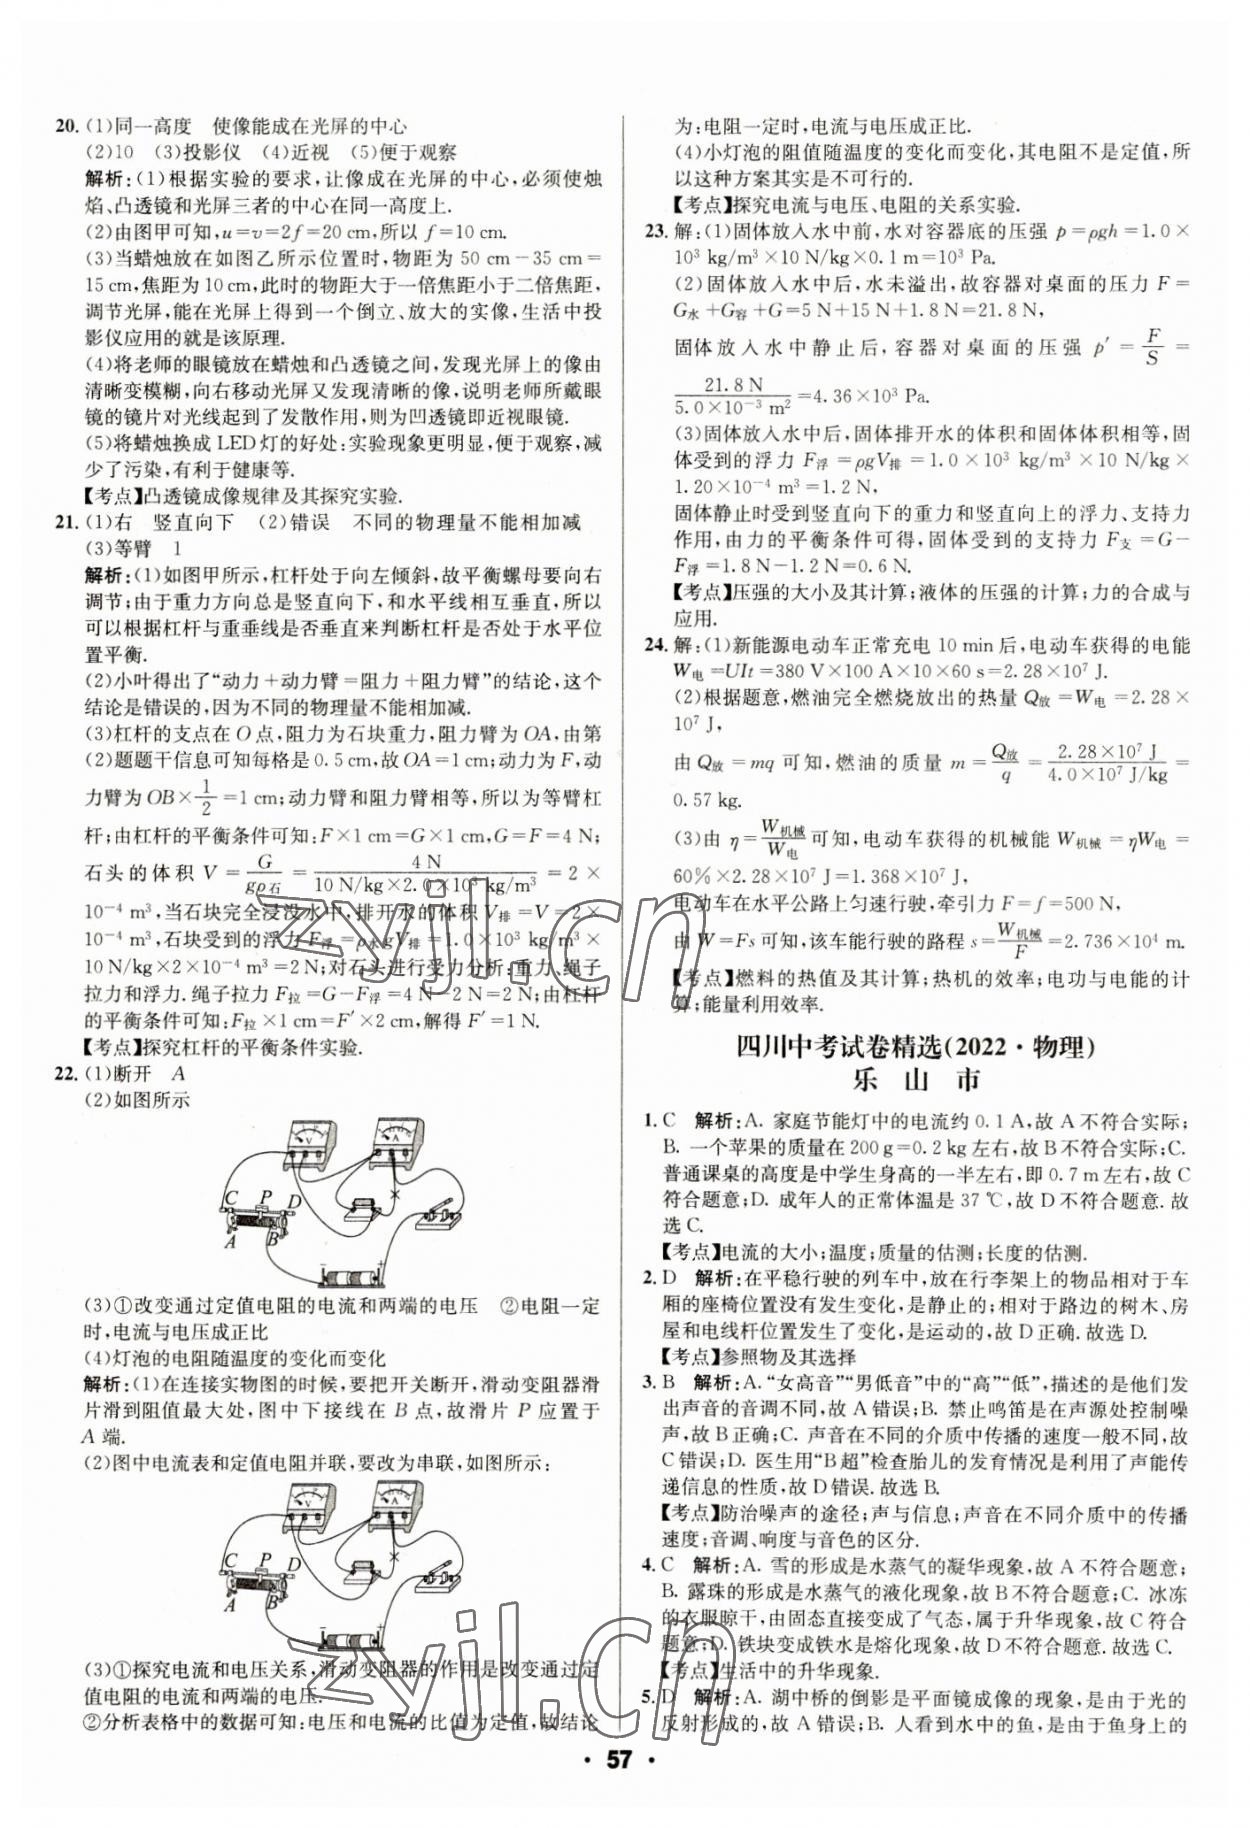 20. (1)同一高度　使像能成在光屏的中心
(2)10　(3)投影仪　(4)近视　(5)便于观察
解析:(1)根据实验的要求,让像成在光屏的中心,必须使烛
焰、凸透镜和光屏三者的中心在同一高度上.
(2)由图甲可知,u=v=2f=20 cm,所以 f=10 cm.
(3)当蜡烛放在如图乙所示位置时,物距为 50 cm-35 cm=
15 cm,焦距为 10 cm,此时的物距大于一倍焦距小于二倍焦距,
调节光屏,能在光屏上得到一个倒立、放大的实像,生活中投
影仪应用的就是该原理.
(4)将老师的眼镜放在蜡烛和凸透镜之间,发现光屏上的像由
清晰变模糊,向右移动光屏又发现清晰的像,说明老师所戴眼
镜的镜片对光线起到了发散作用,则为凹透镜即近视眼镜.
(5)将蜡烛换成 LED 灯的好处:实验现象更明显,便于观察,减
少了污染,有利于健康等.
【考点】凸透镜成像规律及其探究实验.
21. (1)右　竖直向下　(2)错误　不同的物理量不能相加减
(3)等臂　1
解析:(1)如图甲所示,杠杆处于向左倾斜,故平衡螺母要向右
调节;由于重力方向总是竖直向下,和水平线相互垂直,所以
可以根据杠杆与重垂线是否垂直来判断杠杆是否处于水平位
置平衡.
(2)小叶得出了“动力+动力臂=阻力+阻力臂”的结论,这个
结论是错误的,因为不同的物理量不能相加减.
(3)杠杆的支点在 O 点,阻力为石块重力,阻力臂为 OA,由第
(2)题题干信息可知每格是 0.5 cm,故 OA=1 cm;动力为 F,动
力臂为 OB×1/2=1 cm;动力臂和阻力臂相等,所以为等臂杠
杆;由杠杆的平衡条件可知:F×1 cm=G×1 cm,G=F=4 N;
石头的体积 V=G/gρ石=4 N/(10 N/kg×2.0×10³ kg/m³)=2×
10⁻⁴ m³,当石块完全浸没水中,排开水的体积 V排=V=2×
10⁻⁴ m³,石块受到的浮力 F浮=ρ水gV排=1.0×10³ kg/m³×
10 N/kg×2×10⁻⁴ m³=2 N;对石头进行受力分析:重力、绳子
拉力和浮力.绳子拉力 F拉=G-F浮=4 N-2 N=2 N;由杠杆
的平衡条件可知:F拉×1 cm=F′×2 cm,解得 F′=1 N.
【考点】探究杠杆的平衡条件实验.
22. (1)断开　A
(2)如图所示
V A
C P D
A B
- +
(3)①改变通过定值电阻的电流和两端的电压　②电阻一定
时,电流与电压成正比
(4)灯泡的电阻随温度的变化而变化
解析:(1)在连接实物图的时候,要把开关断开,滑动变阻器滑
片滑到阻值最大处,图中下接线在 B 点,故滑片 P 应置于
A 端.
(2)图中电流表和定值电阻并联,要改为串联,如图所示:
V A
C P D
A B
- +
(3)①探究电流和电压关系,滑动变阻器的作用是改变通过定
值电阻的电流和两端的电压.
②分析表格中的数据可知:电压和电流的比值为定值,故结论
为:电阻一定时,电流与电压成正比.
(4)小灯泡的阻值随温度的变化而变化,其电阻不是定值,所
以这种方案其实是不可行的.
【考点】探究电流与电压、电阻的关系实验.
23. 解:(1)固体放入水中前,水对容器底的压强 p=ρgh=1.0×
10³ kg/m³×10 N/kg×0.1 m=10³ Pa.
(2)固体放入水中后,水未溢出,故容器对桌面的压力 F=
G水+G容+G=5 N+15 N+1.8 N=21.8 N,
固体放入水中静止后,容器对桌面的压强 p′=F/S=
21.8 N/(5.0×10⁻³ m²)=4.36×10³ Pa.
(3)固体放入水中后,固体排开水的体积和固体体积相等,固
体受到的浮力 F浮=ρgV排=1.0×10³ kg/m³×10 N/kg×
1.20×10⁻⁴ m³=1.2 N,
固体静止时受到竖直向下的重力和竖直向上的浮力、支持力
作用,由力的平衡条件可得,固体受到的支持力 F支=G-
F浮=1.8 N-1.2 N=0.6 N.
【考点】压强的大小及其计算;液体的压强的计算;力的合成与
应用.
24. 解:(1)新能源电动车正常充电 10 min 后,电动车获得的电能
W电=UIt=380 V×100 A×10×60 s=2.28×10⁷ J.
(2)根据题意,燃油完全燃烧放出的热量 Q放=W电=2.28×
10⁷ J,
由 Q放=mq 可知,燃油的质量 m=Q放/q=2.28×10⁷ J/(4.0×10⁷ J/kg)=
0.57 kg.
(3)由 η=W机械/W电 可知,电动车获得的机械能 W机械=ηW电=
60%×2.28×10⁷ J=1.368×10⁷ J,
电动车在水平公路上匀速行驶,牵引力 F=f=500 N,
由 W=Fs 可知,该车能行驶的路程 s=W机械/F=2.736×10⁴ m.
【考点】燃料的热值及其计算;热机的效率;电功与电能的计
算;能量利用效率.
四川中考试卷精选(2022·物理)
乐 山 市
1. C　解析:A. 家庭节能灯中的电流约 0.1 A,故 A 不符合实际;
B. 一个苹果的质量在 200 g=0.2 kg 左右,故 B 不符合实际;C.
普通课桌的高度是中学生身高的一半左右,即 0.7 m 左右,故 C
符合题意;D. 成年人的正常体温是 37 ℃,故 D 不符合题意.故
选 C.
【考点】电流的大小;温度;质量的估测;长度的估测.
2. D　解析:在平稳行驶的列车中,放在行李架上的物品相对于车
厢的座椅位置没有发生变化,是静止的;相对于路边的树木、房
屋和电线杆位置发生了变化,是运动的,故 D 正确.故选 D.
【考点】参照物及其选择
3. B　解析:A. “女高音”“男低音”中的“高”“低”,描述的是他们发
出声音的音调不同,故 A 错误;B. 禁止鸣笛是在声源处控制噪
声,故 B 正确;C. 声音在不同的介质中传播的速度一般不同,故
C 错误;D. 医生用“B 超”检查胎儿的发育情况是利用了声能传
递信息的性质,故 D 错误. 故选 B.
【考点】防治噪声的途径;声与信息;声音在不同介质中的传播
速度;音调、响度与音色的区分.
4. C　解析:A. 雪的形成是水蒸气的凝华现象,故 A 不符合题意;
B. 露珠的形成是水蒸气的液化现象,故 B 不符合题意;C. 冰冻
的衣服晾干,由固态直接变成了气态,属于升华现象,故 C 符合
题意;D. 铁块变成铁水是熔化现象,故 D 不符合题意.故选 C.
【考点】生活中的升华现象.
5. D　解析:A. 湖中桥的倒影是平面镜成像的现象,是由于光的
反射形成的,故 A 错误;B. 人看到水中的鱼,是由于鱼身上的
· 57 ·
zyjl.cn
zyjl.cn